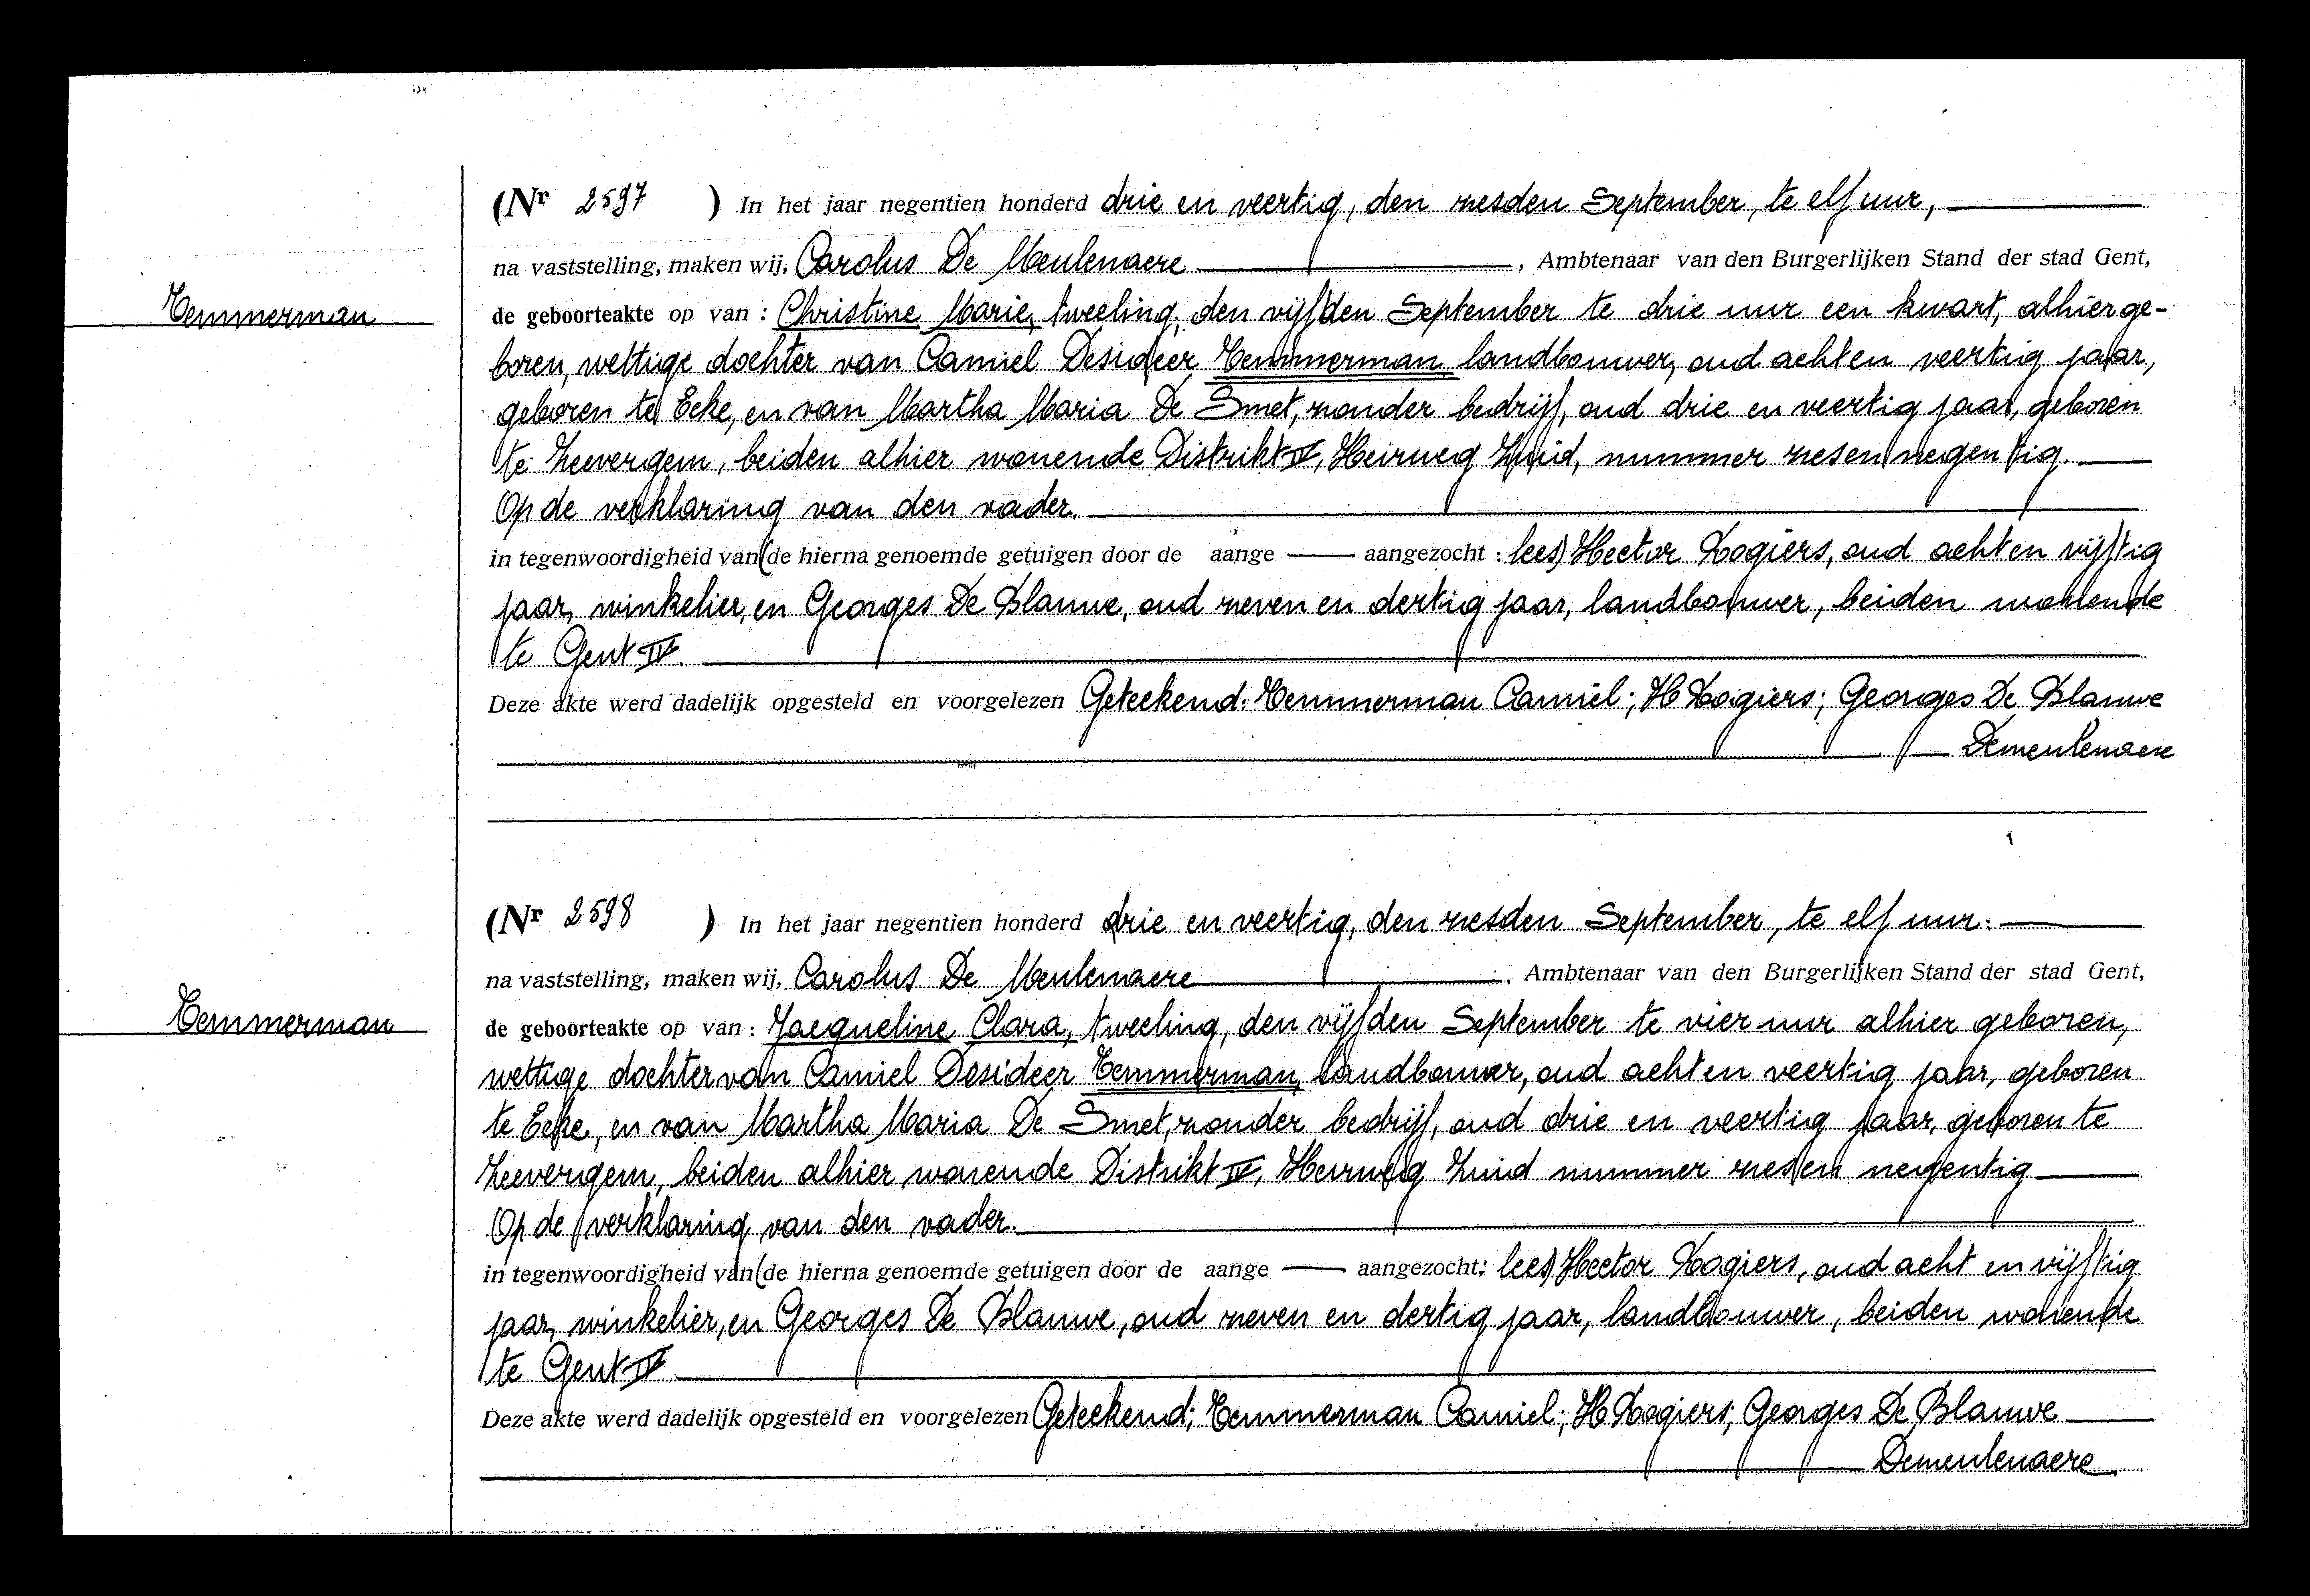 (Nr 2597 ) In het jaar negentien honderd drie en veertig, den zesden September, te elf uur,
na vaststelling, maken wij, Carolus De Meulenaere, Ambtenaar van den Burgerlijken Stand der stad Gent,
Temmerman
de geboorteakte op van : Christine Marie, tweeling, den vijfden September te drie uur een kwart, alhier ge-
boren, wettige dochter van Camiel Desideer Temmerman landbouwer, oud acht en veertig jaar,
geboren te Eeke, en van Martha Maria De Smet, zonder bedrijf, oud drie en veertig jaar, geboren
te Zevergem, beiden alhier wonende Distrikt IV, Heirweg Zuid, nummer zes en negentig.
Op de verklaring van den vader.
in tegenwoordigheid van (de hierna genoemde getuigen door de aange — aangezocht : lees) Hector Rogiers, oud acht en vijftig
jaar, winkelier, en Georges De Blauwe, oud zeven en dertig jaar, landbouwer, beiden wonende
te Gent IV.
Deze akte werd dadelijk opgesteld en voorgelezen Geteekend: Temmerman Camiel; H Rogiers; Georges De Blauwe
Demeulenaere
(Nr 2598 ) In het jaar negentien honderd drie en veertig, den zesden September, te elf uur:
na vaststelling, maken wij, Carolus De Meulenaere, Ambtenaar van den Burgerlijken Stand der stad Gent,
Temmerman
de geboorteakte op van : Jacqueline Clara, tweeling, den vijfden September te vier uur alhier geboren,
wettige dochter van Camiel Desideer Temmerman, landbouwer, oud acht en veertig jaar, geboren
te Eeke, en van Martha Maria De Smet, zonder bedrijf, oud drie en veertig jaar, geboren te
Zevergem, beiden alhier wonende Distrikt IV, Heirweg Zuid nummer zes en negentig
Op de verklaring van den vader.
in tegenwoordigheid van (de hierna genoemde getuigen door de aange — aangezocht: lees) Hector Rogiers, oud acht en vijftig
jaar, winkelier, en Georges De Blauwe, oud zeven en dertig jaar, landbouwer, beiden wonende
te Gent IV
Deze akte werd dadelijk opgesteld en voorgelezen Geteekend: Temmerman Camiel; H Rogiers; Georges De Blauwe
Demeulenaere